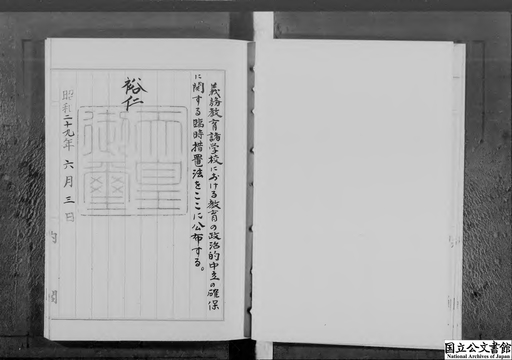 義務教育諸学校における教育の政治的中立の確保
に関する臨時措置法をここに公布する。
裕仁
天皇
御璽
昭和二十九年六月三日
国立公文書館
National Archives of Japan